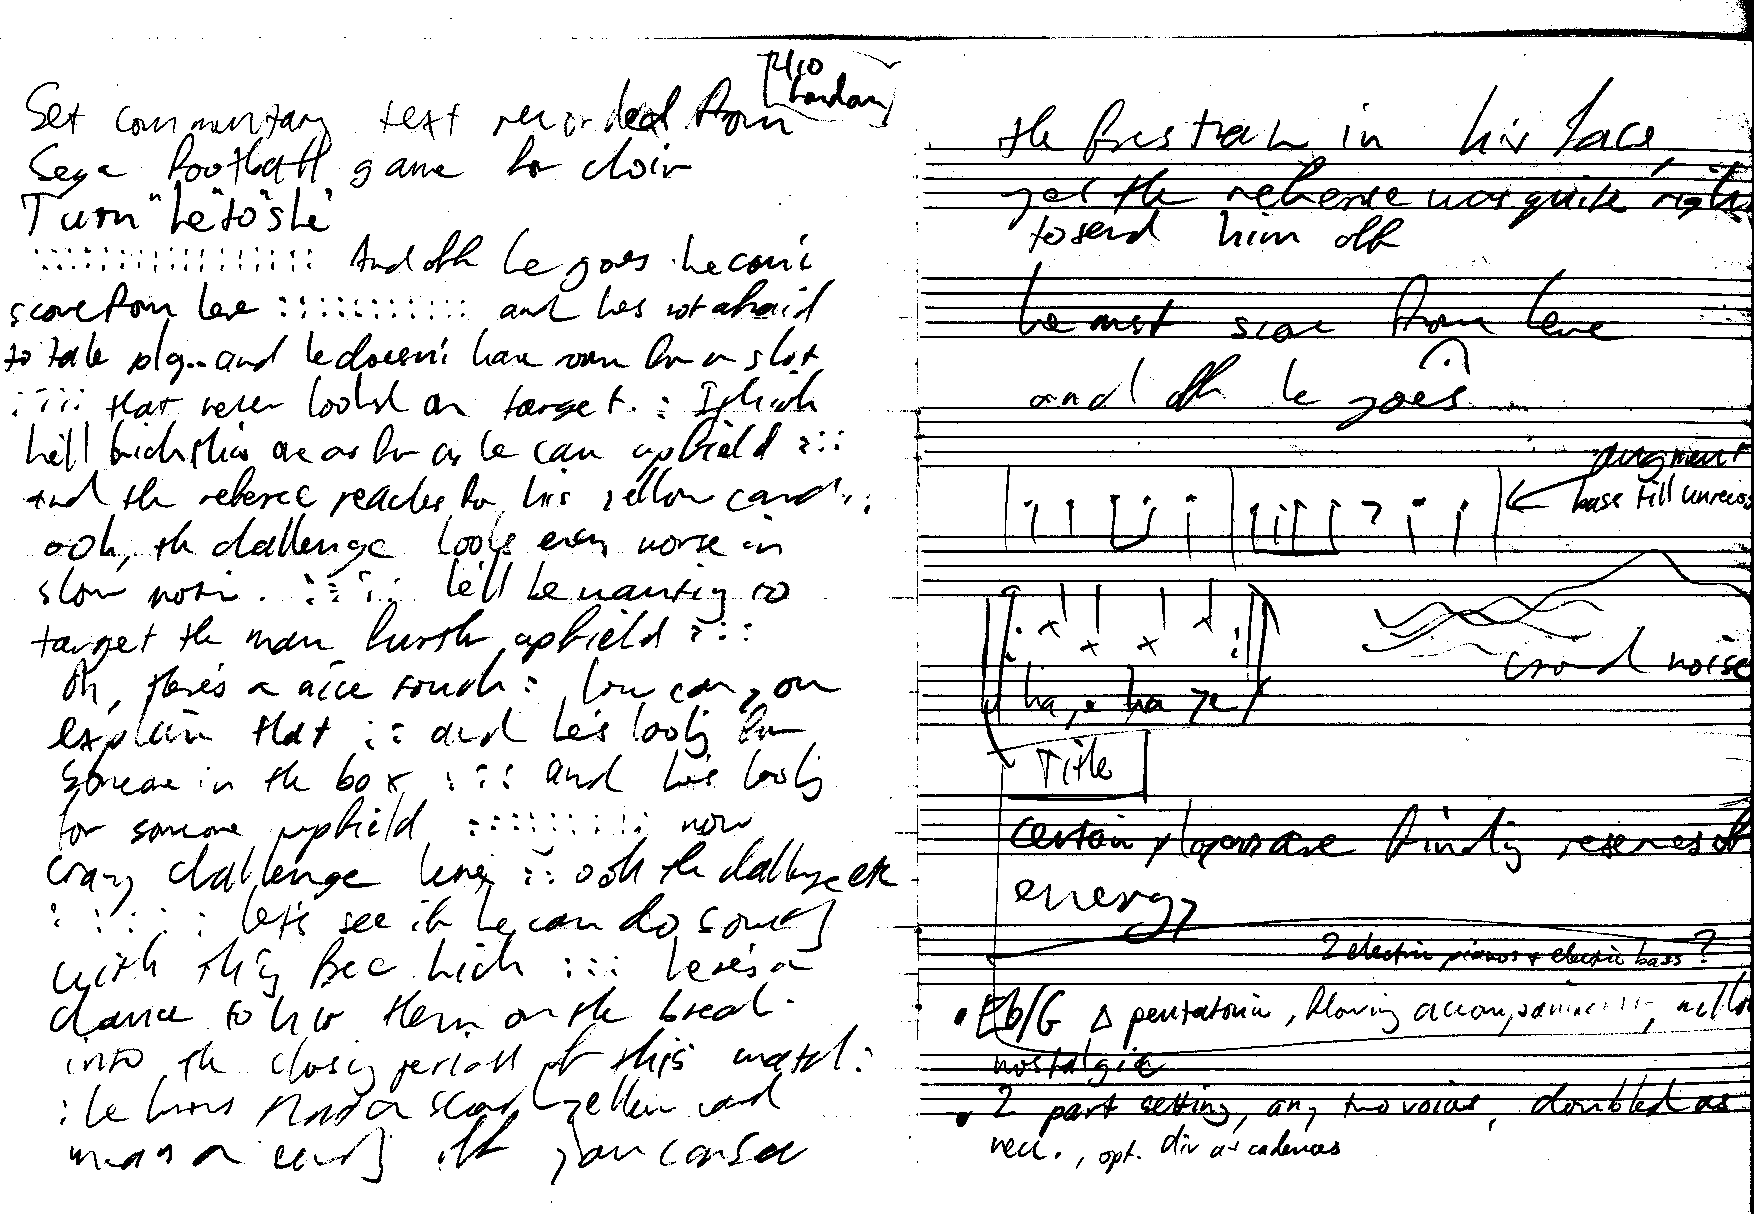 Set commentary text recorded from
Sega football game for choir
Turn "he" to "she"
:::::::::::::: And off he goes he can't
score from here ::::::::::: and he's not afraid
to take play.. and he doesn't have room for a shot
:::: that never looked on target. : I think
he'll kick this one as far as he can upfield :::
and the referee reaches for his yellow card :::
ooh, the challenge looks even worse in
slow motn. ::::: he'll be wanting to
target the man furth upfield :::
Oh, there's a nice touch : how can you
explain that :: and he's lookg for
someone in the box :::: and he's lookg
for someone upfield ::::::::: now
crazy challenge here :: ooh the challenge etc
:::::: let's see if he can do somethg
with this free kick ::: here's a
chance to hit them on the break.
into the closing period of this match :
: he knows that a second yellow card
means an early off you can see
the frustratn in his face,
yes the referee was quite right
to send him off
he must score from here
and off he goes
augment
base till unrecog
crowd noise
ha, ye ha ye
Title
certain players are finding reserves of
energy
2 electric pianos + electric bass?
• Eb/G Δ pentatonic, flowing accompanim::::, mello
nostalgic
• 2 part setting, any two voices, doubled as
nec., opt. div at cadences